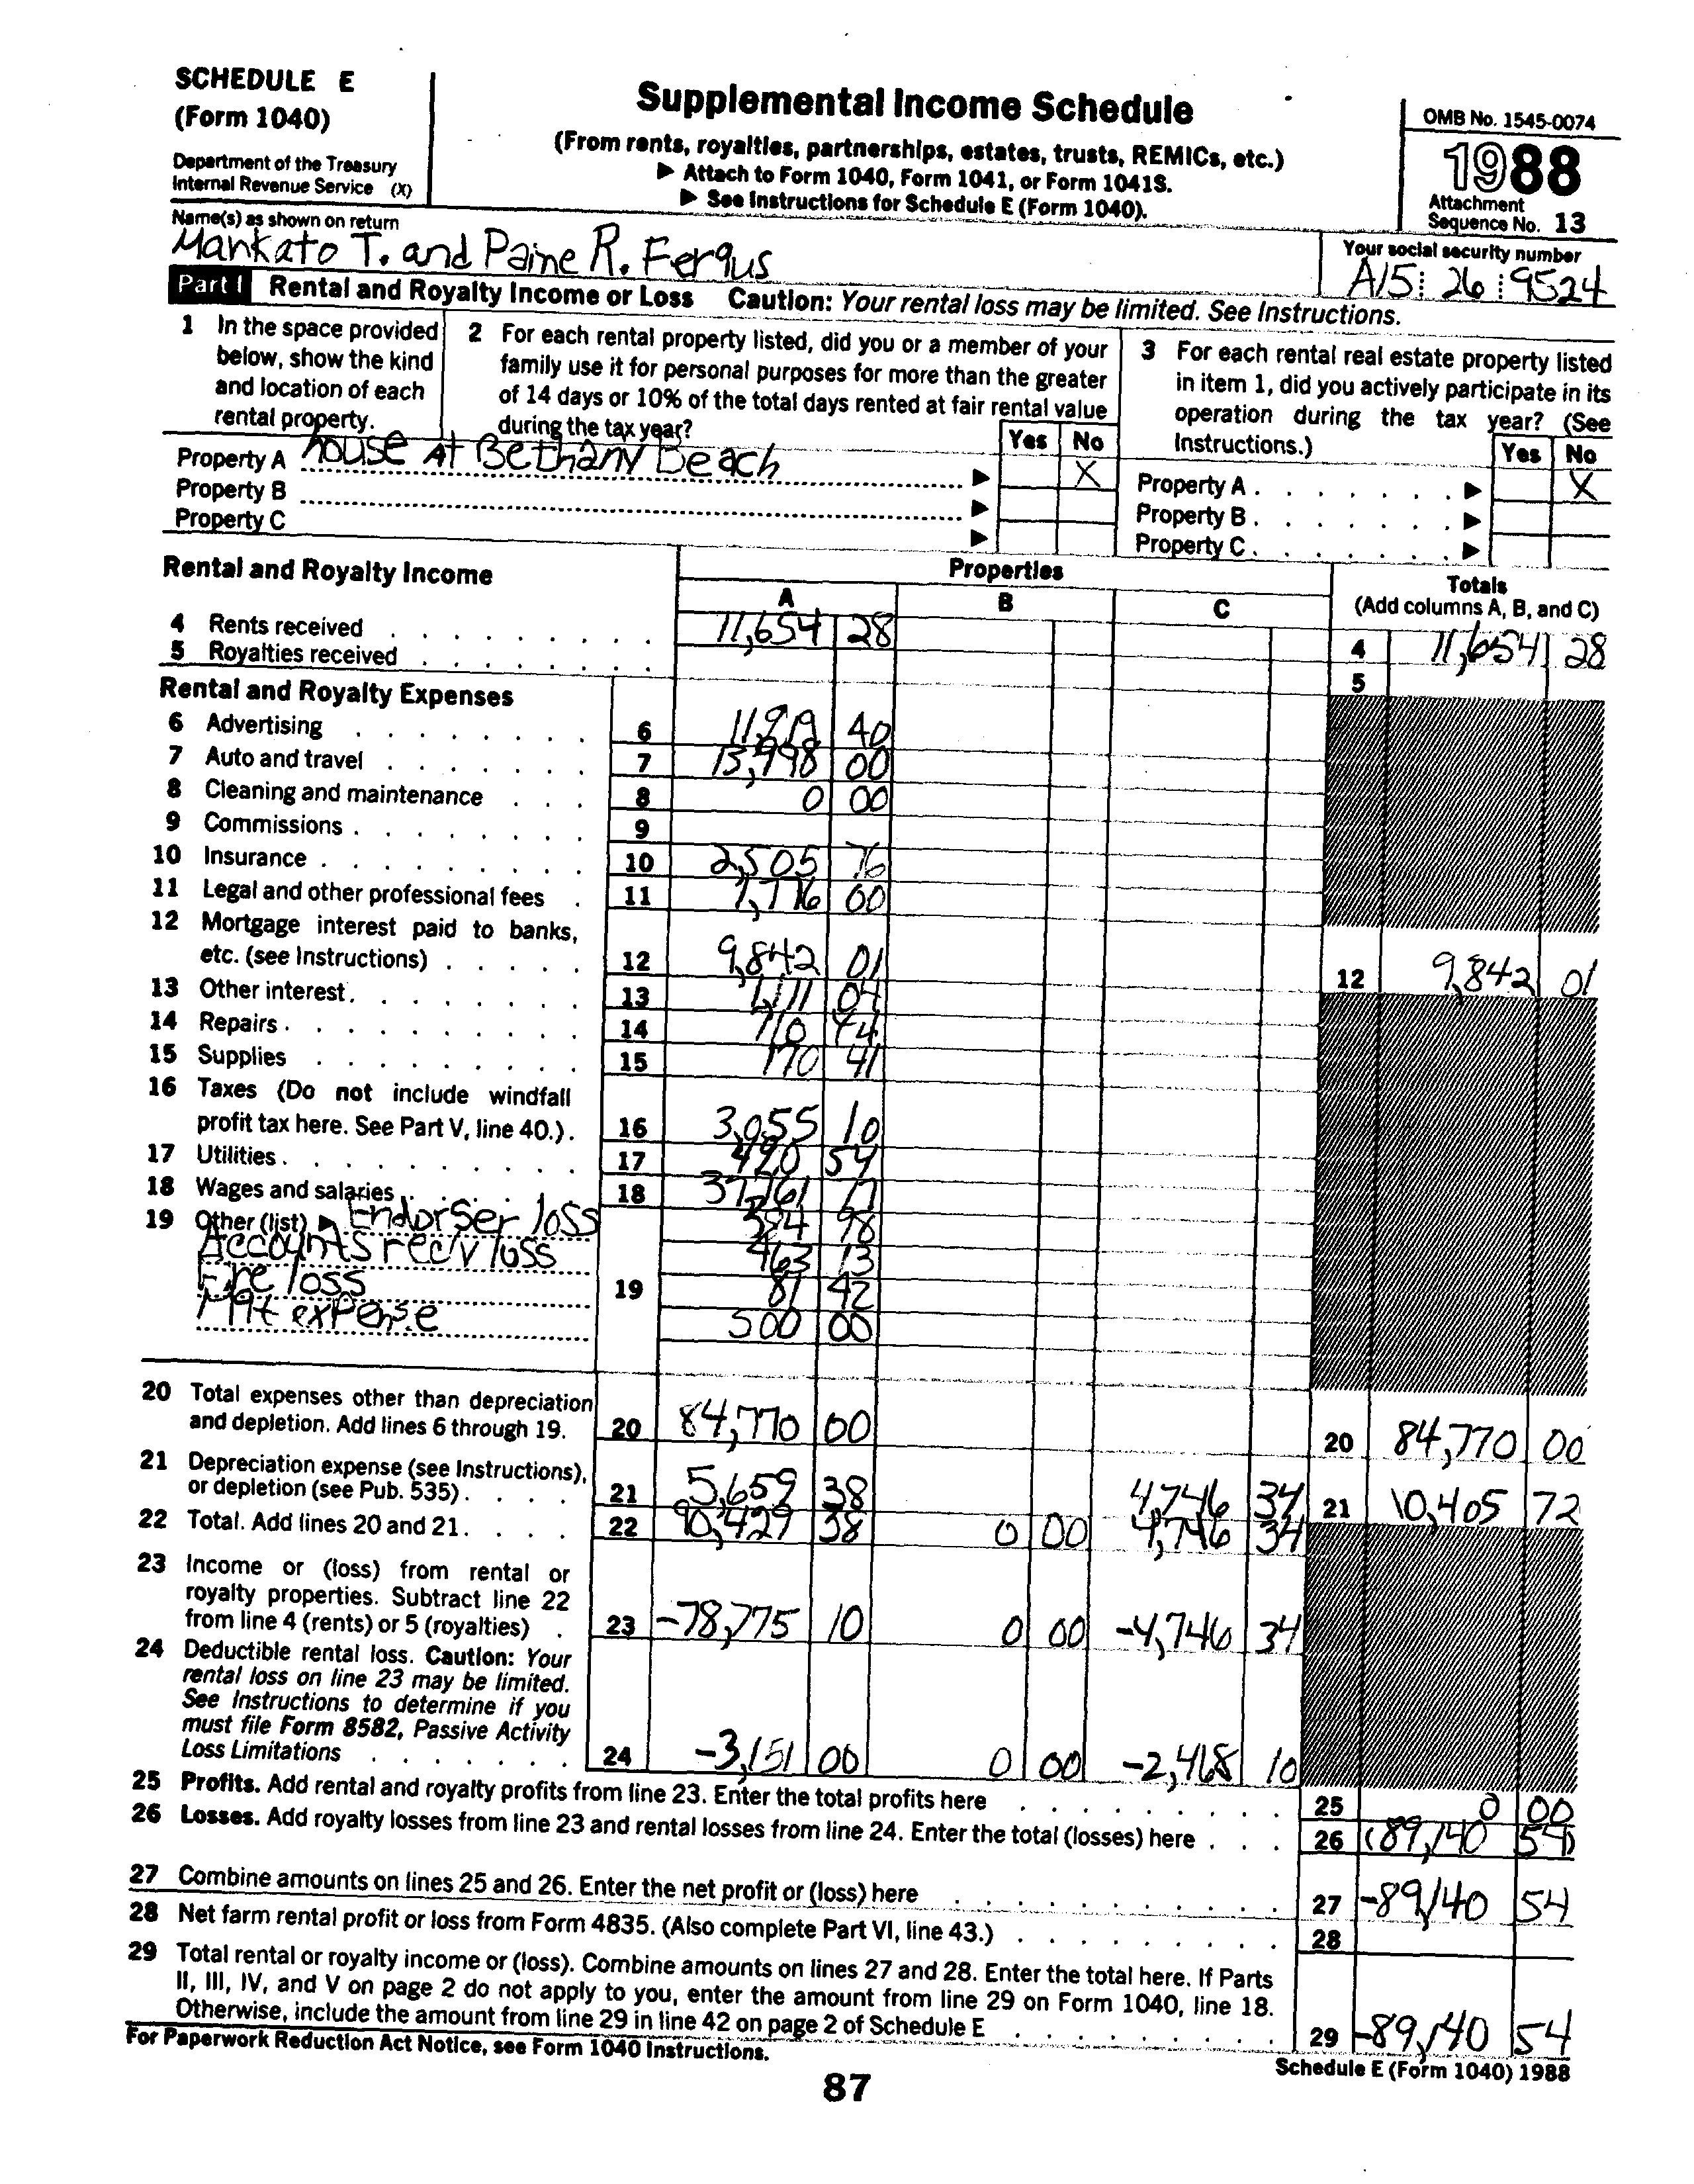 SCHEDULE E
(Form 1040)
Department of the Treasury
Internal Revenue Service (X)
Supplemental Income Schedule
(From rents, royalties, partnerships, estates, trusts, REMICs, etc.)
▶ Attach to Form 1040, Form 1041, or Form 1041S.
▶ See Instructions for Schedule E (Form 1040).
OMB No. 1545-0074
1988
Attachment
Sequence No. 13
Name(s) as shown on return
Mankato T. and Paine R. Fergus
Your social security number
A15 26 9524
Part I Rental and Royalty Income or Loss Caution: Your rental loss may be limited. See Instructions.
1 In the space provided
below, show the kind
and location of each
rental property.
2 For each rental property listed, did you or a member of your
family use it for personal purposes for more than the greater
of 14 days or 10% of the total days rented at fair rental value
during the tax year?
Yes No
3 For each rental real estate property listed
in item 1, did you actively participate in its
operation during the tax year? (See
Instructions.)
Yes No
Property A house At Bethany Beach ▶ X
Property B ▶
Property C ▶
Property A . . . . . . . ▶ X
Property B . . . . . . . ▶
Property C . . . . . . . ▶
Rental and Royalty Income
Properties
A B C
Totals
(Add columns A, B, and C)
4 Rents received 11,654 28 4 11,654 28
5 Royalties received 5
Rental and Royalty Expenses
6 Advertising 6 40
7 Auto and travel 7 00
8 Cleaning and maintenance 8 0 00
9 Commissions 9
10 Insurance 10 2,505 76
11 Legal and other professional fees 11 1,776 00
12 Mortgage interest paid to banks,
etc. (see Instructions) 12 9,842 01 12 9,842 01
13 Other interest 13 1,111 04
14 Repairs 14 710 44
15 Supplies 15 170 41
16 Taxes (Do not include windfall
profit tax here. See Part V, line 40.) 16 3,055 10
17 Utilities 17 54
18 Wages and salaries 18
19 Other (list) ▶ Endorser loss 98
Accounts recv loss 463 13
Fire loss 19 81 42
Mgt expense 500 00
20 Total expenses other than depreciation
and depletion. Add lines 6 through 19. 20 84,770 00 20 84,770 00
21 Depreciation expense (see Instructions),
or depletion (see Pub. 535) 21 5,659 38 4,746 34 21 10,405 72
22 Total. Add lines 20 and 21. 22 90,429 38 0 00 4,746 34
23 Income or (loss) from rental or
royalty properties. Subtract line 22
from line 4 (rents) or 5 (royalties) 23 -78,775 10 0 00 -4,746 34
24 Deductible rental loss. Caution: Your
rental loss on line 23 may be limited.
See Instructions to determine if you
must file Form 8582, Passive Activity
Loss Limitations 24 -3,151 00 0 00 -2,468 10
25 Profits. Add rental and royalty profits from line 23. Enter the total profits here 25 0 00
26 Losses. Add royalty losses from line 23 and rental losses from line 24. Enter the total (losses) here 26 (89,140 54)
27 Combine amounts on lines 25 and 26. Enter the net profit or (loss) here 27 -89,140 54
28 Net farm rental profit or loss from Form 4835. (Also complete Part VI, line 43.) 28
29 Total rental or royalty income or (loss). Combine amounts on lines 27 and 28. Enter the total here. If Parts
II, III, IV, and V on page 2 do not apply to you, enter the amount from line 29 on Form 1040, line 18.
Otherwise, include the amount from line 29 in line 42 on page 2 of Schedule E 29 -89,140 54
For Paperwork Reduction Act Notice, see Form 1040 Instructions.
Schedule E (Form 1040) 1988
87